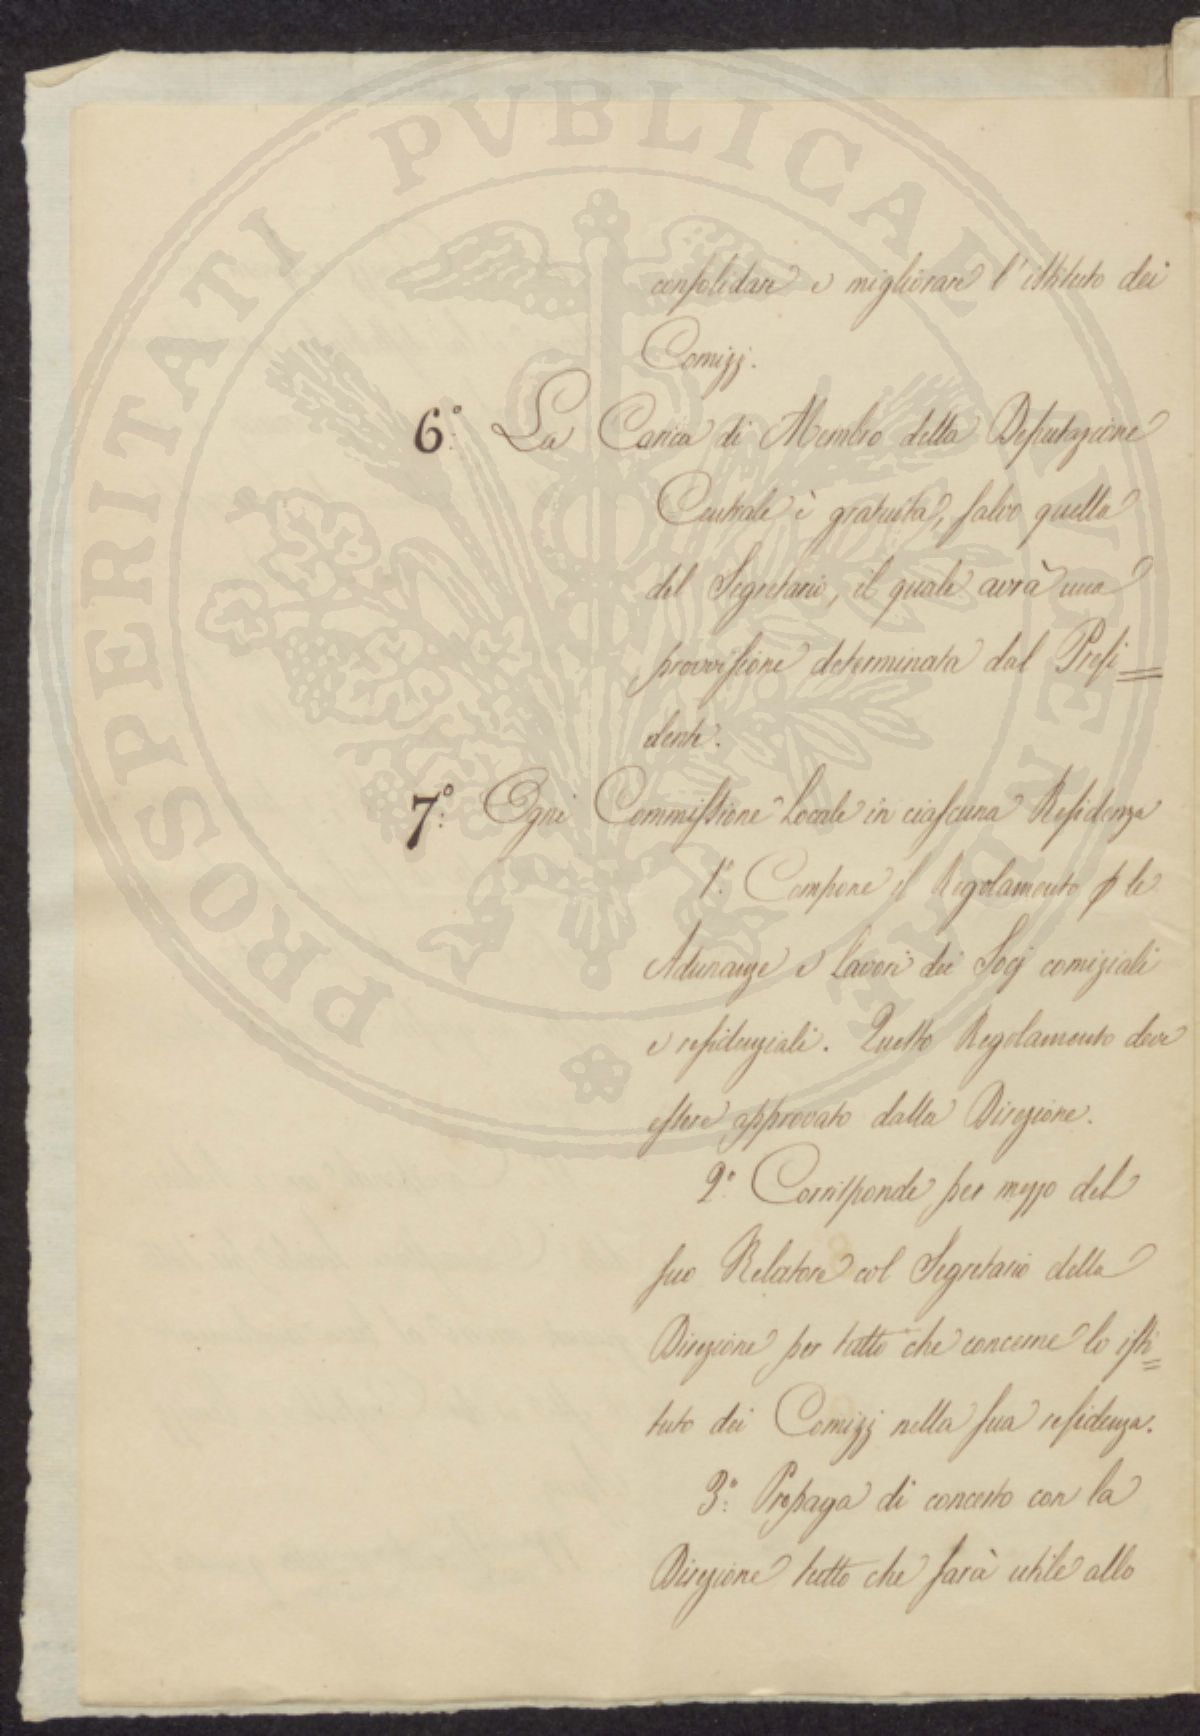 consolidare e migliorare l'istituto dei
Comizj.
6.° La Carica di Membro della Deputazione
Centrale è gratuita, salvo quella
del Segretario, il quale avrà una
provvisione determinata dal Presi=
dente.
7.° Ogni Commissione Locale in ciascuna Residenza
1.° Compone il Regolamento p le
Adunanze e lavori dei Socj comiziali
e residenziali. Questo Regolamento deve
essere approvato dalla Direzione.
2.° Corrisponde per mezzo del
suo Relatore col Segretario della
Direzione per tutto che concerne lo isti=
tuto dei Comizj nella sua residenza.
3.° Propaga di concerto con la
Direzione tutto che sarà utile allo
PROSPERITATI PVBLICAE AVGENDAE